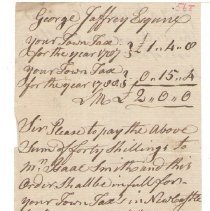 565
George Jaffrey Esquire
Your Town Tax
for the year 1787 } £ 1..4..8
Your Town Tax
for the year 1788 } 0..15..4
LM £ 2..0..0
Sir Please to pay the Above
Sum of forty Shillings To
Mr. Isaac Smith and this
Order Shall be in full for
your Town Taxes in NewCastle